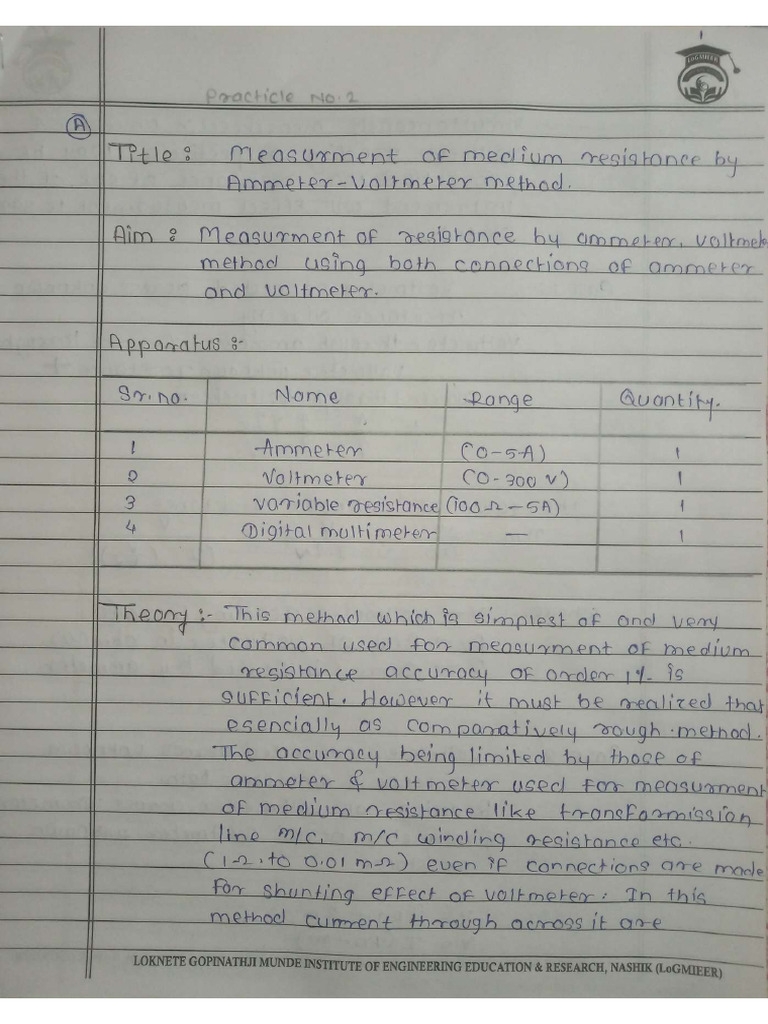 LoGMIEER
Practicle No:2
A
Title : Measurment of medium resistance by
Ammeter-Voltmeter method.
Aim : Measurment of resistance by ammeter, voltmete
method using both connections of ammeter
and voltmeter.
Apparatus :-
Sr.no. Name Range Quantity.
1 Ammeter (0-5A) 1
2 Voltmeter (0-300 V) 1
3 variable resistance (100 Ω - 5A) 1
4 Digital multimeter — 1
Theory :- This method which is simplest of and very
common used for measurment of medium
resistance accuracy of order 1% is
sufficient. However it must be realized that
esencially as comparatively rough method.
The accuracy being limited by those of
ammeter & voltmeter used for measurment
of medium resistance like transformission
line m/c, m/c winding resistance etc.
(1Ω to 0.01 mΩ) even if connections are made
for shunting effect of voltmeter. In this
method current through across it are
LOKNETE GOPINATHJI MUNDE INSTITUTE OF ENGINEERING EDUCATION & RESEARCH, NASHIK (LoGMIEER)